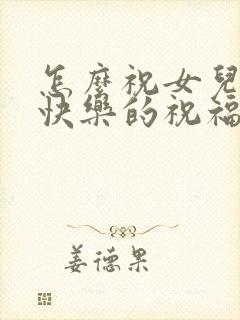 怎麼祝女兒
快樂的祝福
姜德果